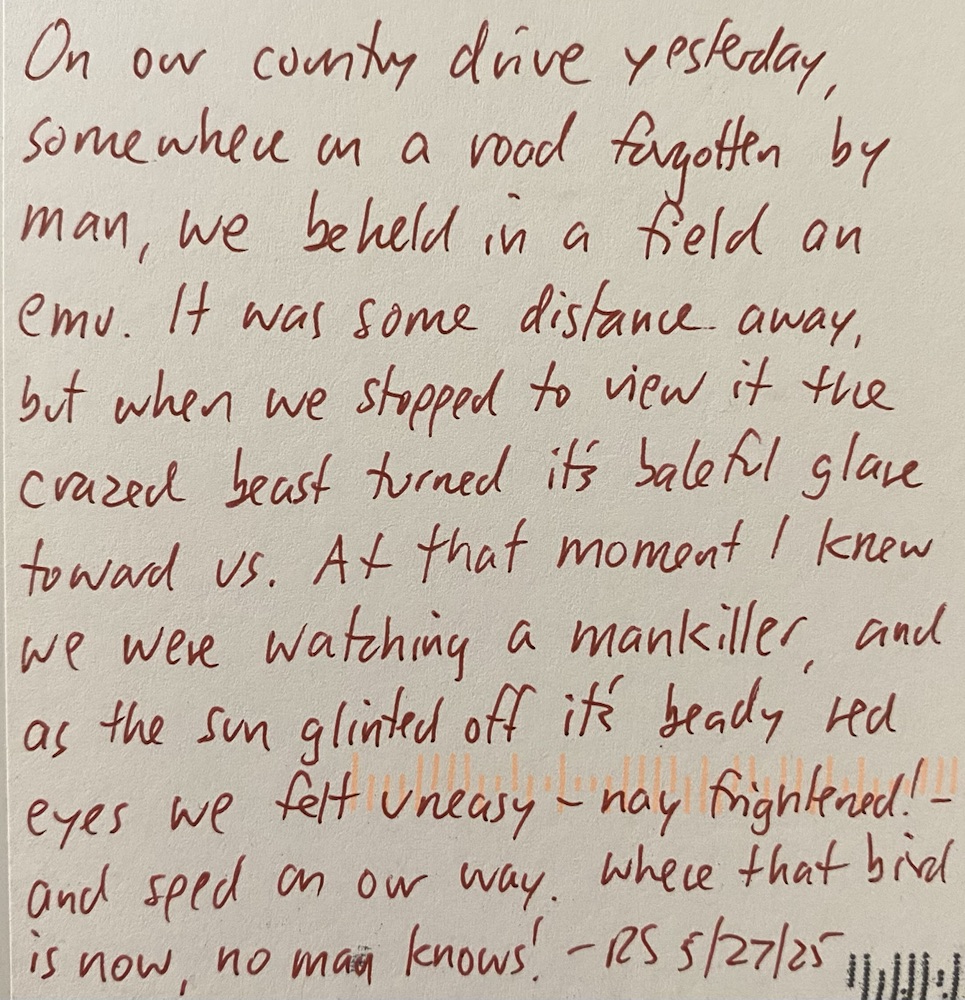 On our country drive yesterday,
somewhere on a road forgotten by
man, we beheld in a field an
emu. It was some distance away,
but when we stopped to view it the
crazed beast turned it's baleful glare
toward us. At that moment I knew
we were watching a mankiller, and
as the sun glinted off it's beady red
eyes we felt uneasy – nay frightened! –
and sped on our way. Where that bird
is now, no man knows! – RS 5/27/25